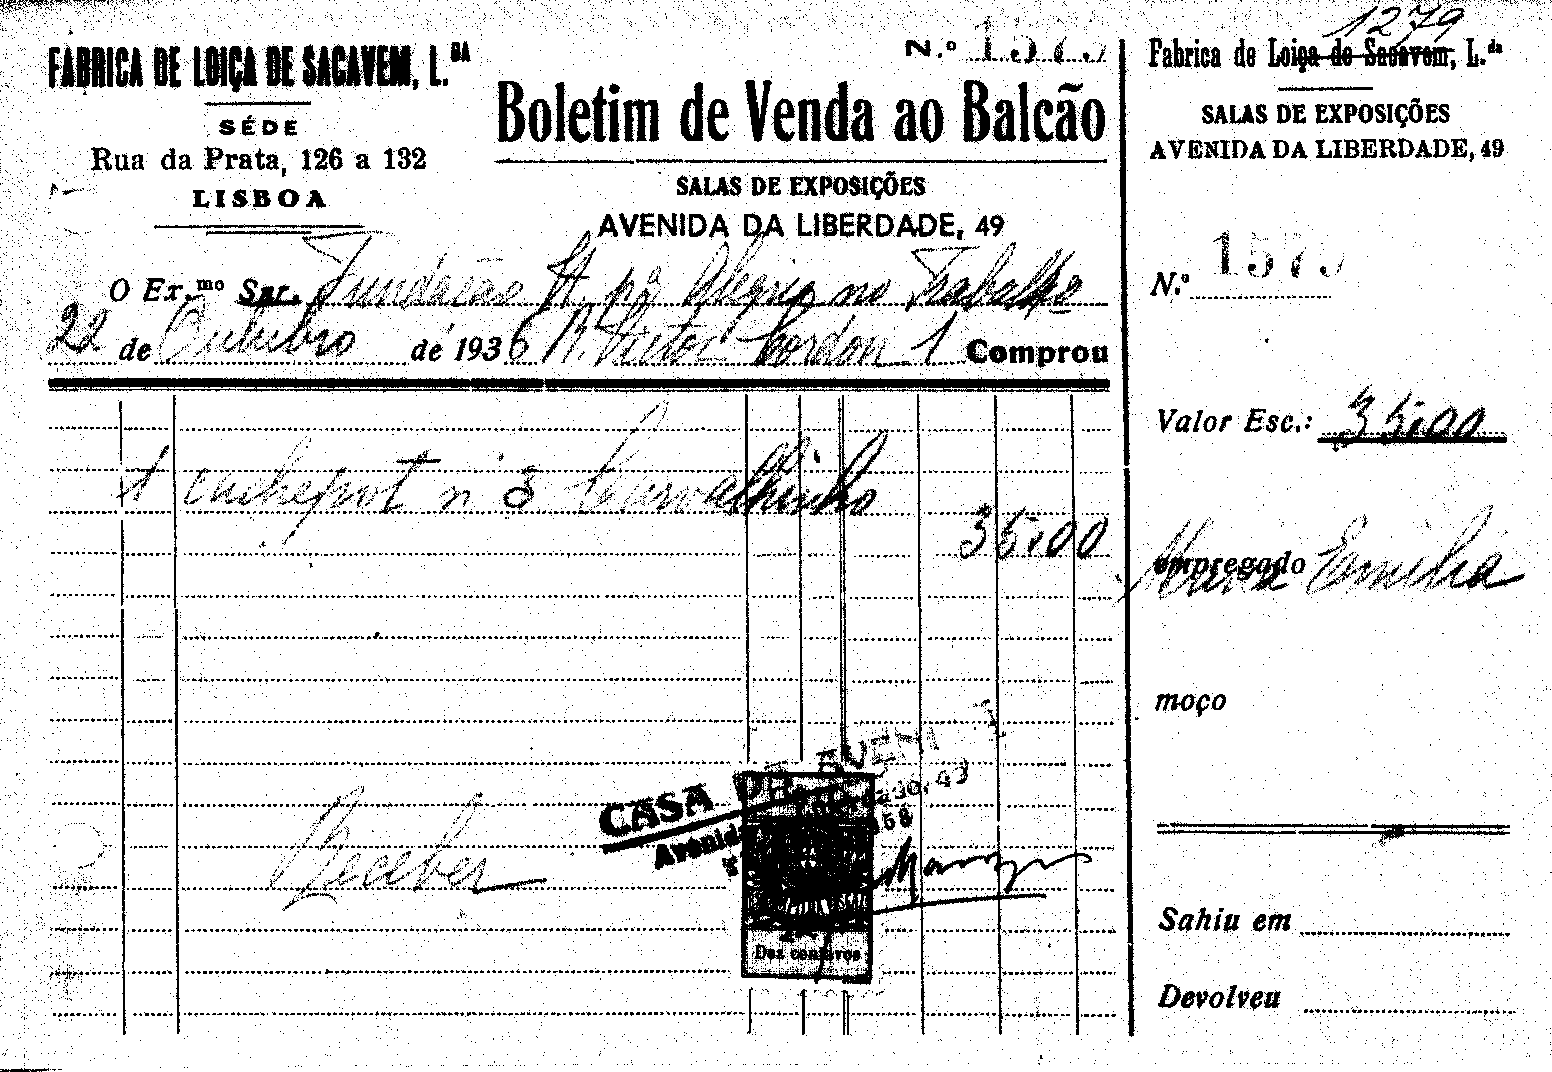 FABRICA DE LOIÇA DE SACAVEM, L.DA
SÉDE
Rua da Prata, 126 a 132
LISBOA
N.º 1575
Boletim de Venda ao Balcão
SALAS DE EXPOSIÇÕES
AVENIDA DA LIBERDADE, 49
O Ex.mo Snr. Fundação N. pª Alegria no Trabalho
22 de Outubro de 1936 R. Victor Cordon 1 Comprou
1 cachepot n 3 Carvalhinho
35.00
Receber
CASA DA AVENI
Avenida
Dez centavos
1279
Fabrica de Loiça de Sacavem, L.da
SALAS DE EXPOSIÇÕES
AVENIDA DA LIBERDADE, 49
N.º 1575
Valor Esc.: 35.00
empregado Maria Emilia
moço
Sahiu em
Devolveu